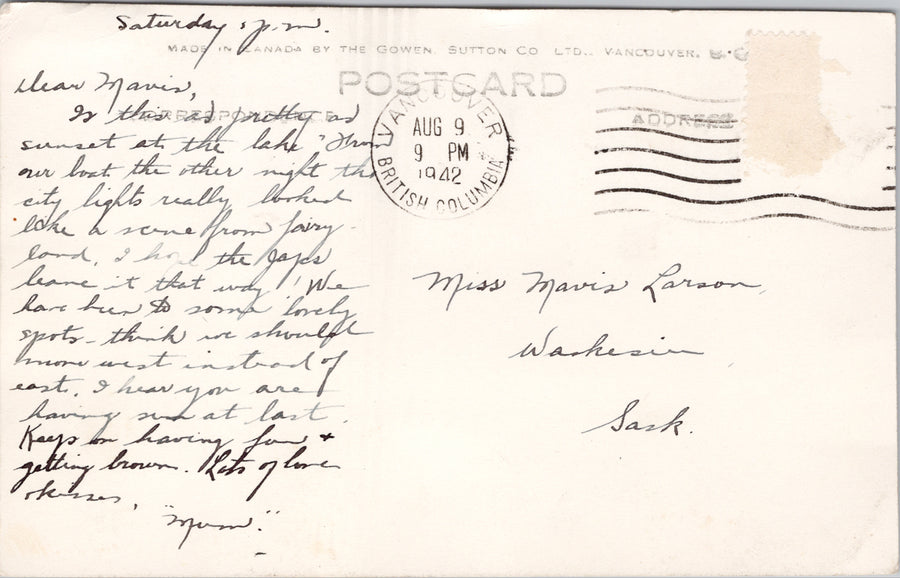 Saturday 8 p.m.
MADE IN CANADA BY THE GOWEN, SUTTON CO LTD., VANCOUVER, B.C.
POSTCARD
CORRESPONDENCE
ADDRESS
VANCOUVER
AUG 9
9 PM
1942
BRITISH COLUMBIA
Dear Mavis,
Is this as pretty as
sunset at the lake? From
our boat the other night the
city lights really looked
like a scene from fairy-
land. I hope the Japs
leave it that way! We
have been to some lovely
spots - think we should
move west instead of
east. I hear you are
having sun at last.
Keep on having fun +
getting brown. Lots of love
& kisses,
"Mum".
Miss Mavis Larson,
Waskesiu
Sask.